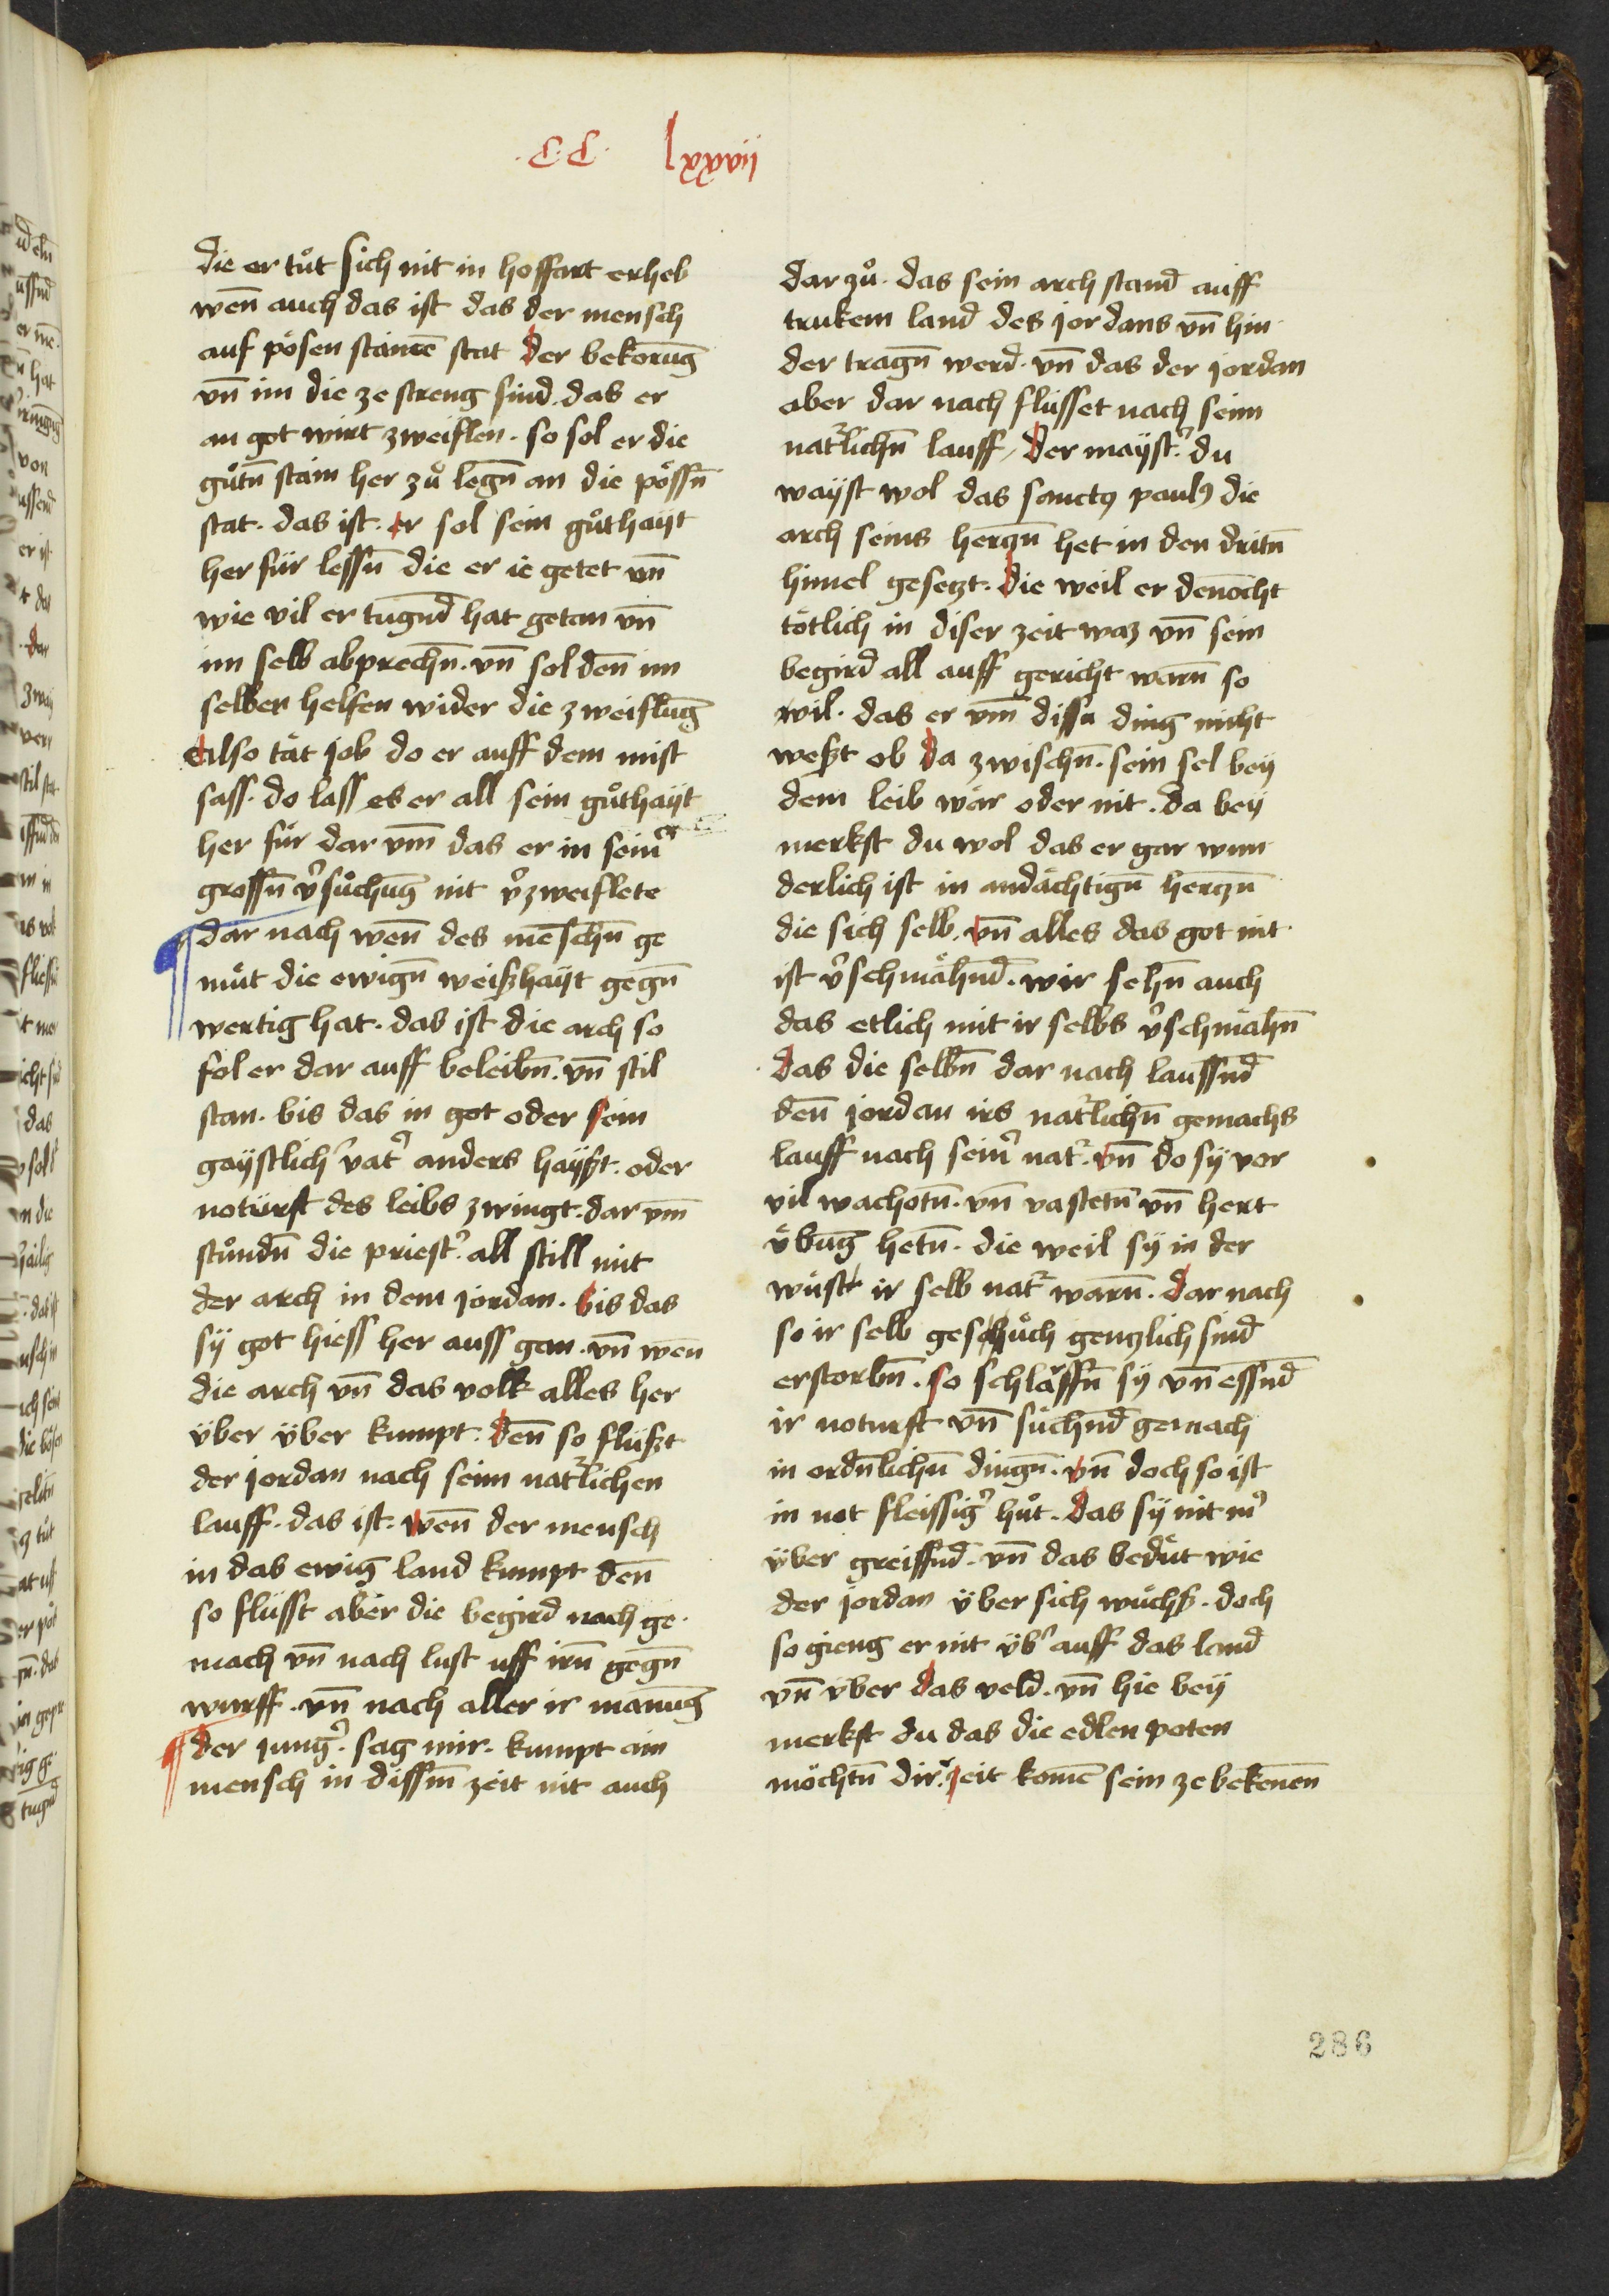 .C.C. lxxvij
die er tuͦt sich nit in hoffart erheb
wen̄ auch das ist das der mensch
auf pösen stainē stat der bekorūg
vn̄ im die ze streng sind. das er
an got wirt zweiflen. so sol er die
guͦtn̄ stain her zuͦ legn̄ an die pössn̄
stat. das ist. er sol sein guͦthayt
her für lessn̄ die er ie getet vn̄
wie vil er tugnd̄ hat getan vn̄
im selb abprechn̄. vn̄ sol den̄ im
selber helfen wider die zweiflūg
Also tät job do er auff dem mist
sass. do lass es er all sein guͦthayt
her für dar vm̄ das er in sein̄er
grossn̄ v͛suͦchūg nit v͛zweiflete
¶ dar nach wen̄ des mēschn̄ ge
müt die ewign̄ weißhayt gegn̄
wertig hat. das ist die arch so
sol er dar auff beleibn̄. vn̄ stil
stan. bis das in got oder sein
gaystlich͛ vat͛ anders hayßt. oder
noturft des leibs zwingt. dar vm̄
stuͦndn̄ die priest͛. all still mit
der arch in dem jordan. bis das
sy got hiess her auss gan. vn̄ wen̄
die arch vn̄ das volk alles her
über über kumpt. den̄ so flüßt
der jordan nach seim nat͛lichen
lauff. das ist. wen̄ der mensch
in das ewig land kumpt den̄
so flüsst aber die begird nach ge.
mach vn̄ nach lust uff irn̄ gegn̄
wurff. vn̄ nach aller ir manūg
¶ der jung͛. sag mir. kumpt ain
mensch in dissm̄ zeit nit auch
dar zuͦ. das sein arch stand̄ auff
trukem land̄ des jordans vn̄ hin
der tragn̄ werd̄. vn̄ das der jordan
aber dar nach flüsset nach seim
nat͛lichn̄ lauff, der mayst͛. du
wayst wol das sanctꝰ paulꝰ die
arch seins herczn̄ het in den dritn̄
himel gesetzt. die weil er denocht
tötlich in diser zeit waz vn̄ sein
begird all auff gericht warn̄ so
vil. das er vm̄ dissu ding nicht
weßt ob da zwischn̄. sein sel bey
dem leib wär oder nit. da bey
merkst du wol das er gar wun
derlich ist in andächtign̄ herczn̄
die sich selb. vn̄ alles das got nit
ist v͛schmähnd̄. wir sehn̄ auch
das etlich mit ir selbs v͛schmähn̄
das die selbn̄ dar nach laussnd̄
den̄ jordan irs nat͛lichn̄ gemachs
lauff nach sein͛ nat͛. vn̄ do sy vor
vil wachotn̄. vn̄ vastetn̄ vn̄ hert
übūg hetn̄. die weil sy in der
wüst ir selb nat͛ warn̄. dar nach
so ir selb gesuͦch genczlich sind̄
erstorbn̄. so schlaffn̄ sy vn̄ essnd̄
ir noturft vn̄ suchnd̄ gemach
in ordn̄lichn̄ dingn̄. vn̄ doch so ist
in not fleissig͛ huͦt. das sy nit m͛
über greiffnd̄. vn̄ das bedüt wie
der jordan über sich wuchß. doch
so gieng er nit üb͛ auff das land̄
vn̄ über das veld̄. vn̄ hie bey
merkst du das die edlen poten
möchtn̄ dir. zeit komē sein ze bekenen̄
286